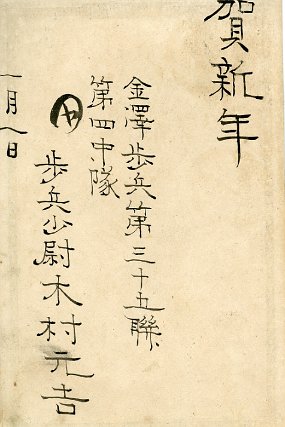 賀新年
金澤歩兵第三十五聯
第四中隊
歩兵少尉木村元吉
一月一日